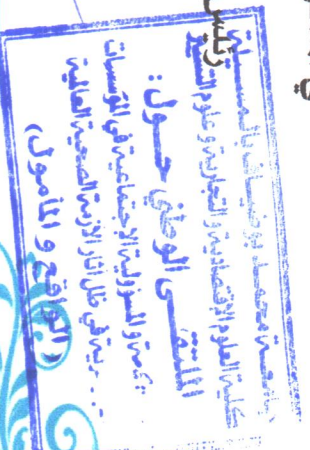 رئيس
جامعة محمد بوضياف بالمسيلة
كلية العلوم الاقتصادية والتجارية وعلوم التسيير
الملتقى الوطني حول:
والمسؤولية الاجتماعية في المؤسسات
في ظل آثار الأزمة الصحية العالمية
(الواقع و المأمول)